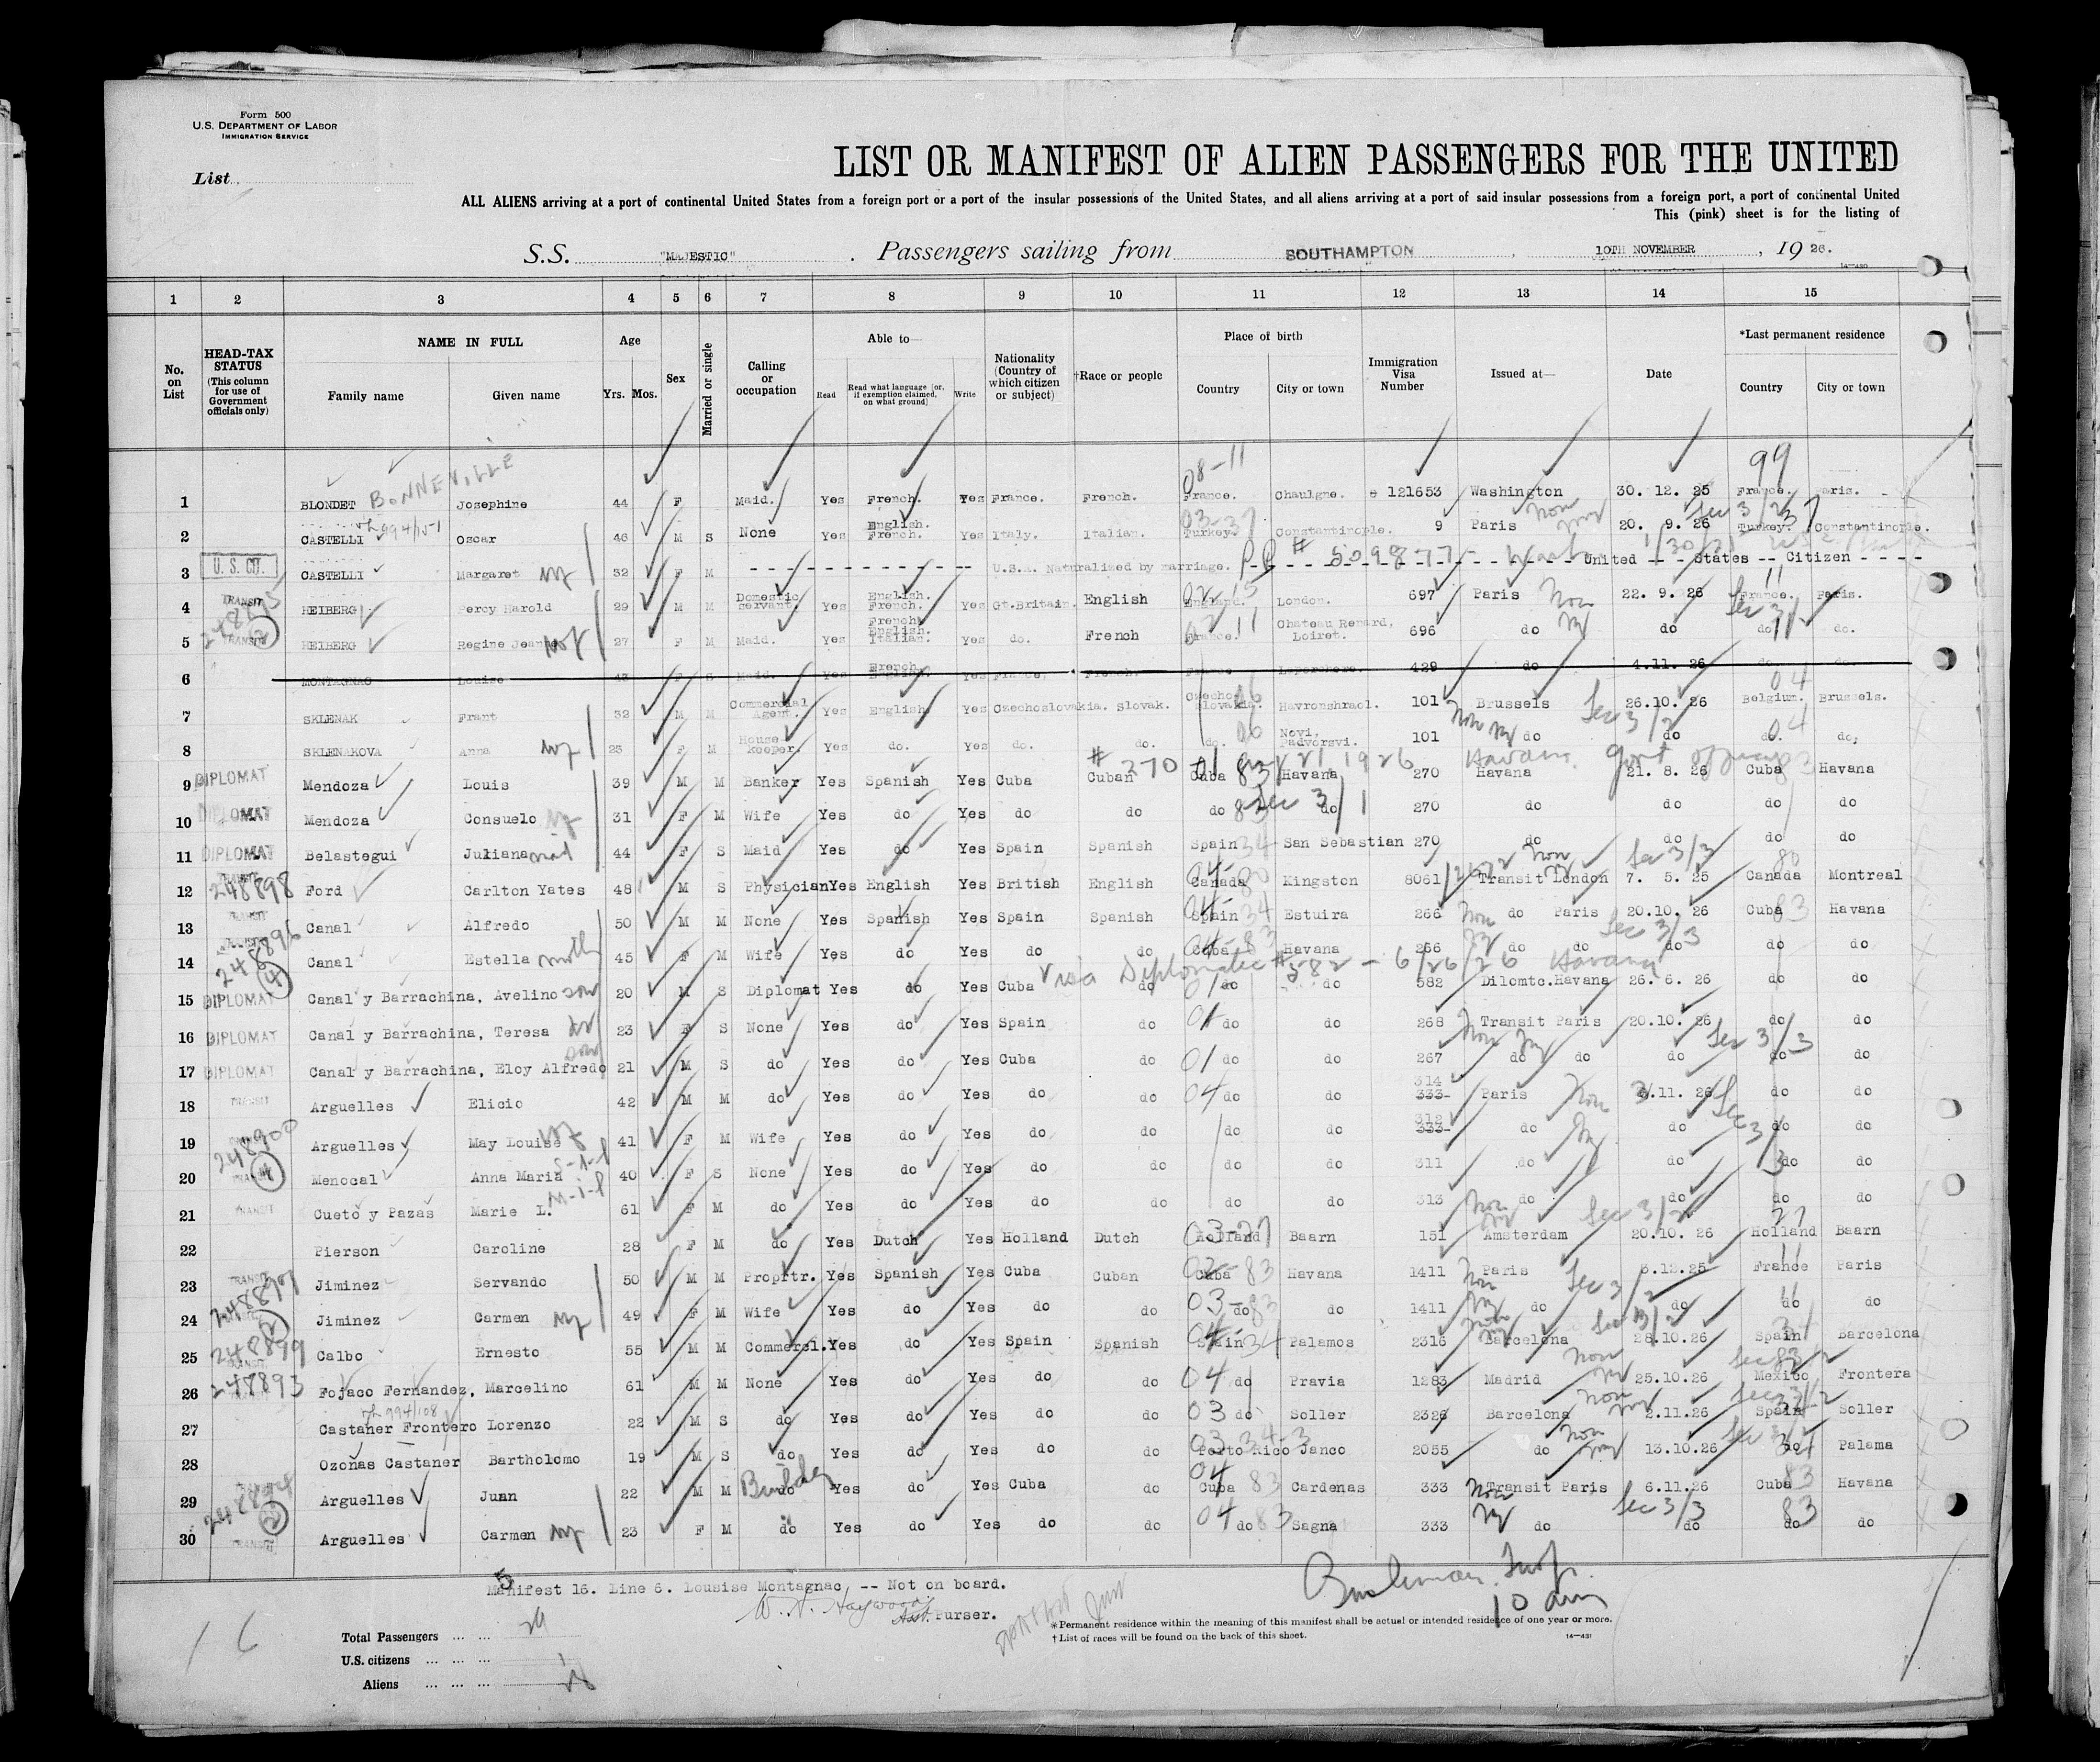 Form 500
U.S. DEPARTMENT OF LABOR
IMMIGRATION SERVICE
List
LIST OR MANIFEST OF ALIEN PASSENGERS FOR THE UNITED
ALL ALIENS arriving at a port of continental United States from a foreign port or a port of the insular possessions of the United States, and all aliens arriving at a port of said insular possessions from a foreign port, a port of continental United
This (pink) sheet is for the listing of
S.S. "MAJESTIC" . Passengers sailing from SOUTHAMPTON , 10TH NOVEMBER , 19 26.
14-430
1 2 3 4 5 6 7 8 9 10 11 12 13 14 15
No. on List
HEAD-TAX STATUS (This column for use of Government officials only)
NAME IN FULL Family name Given name
Age Yrs. Mos.
Sex
Married or single
Calling or occupation
Able to— Read Read what language [or, if exemption claimed, on what ground] Write
Nationality (Country of which citizen or subject)
†Race or people
Place of birth Country City or town
Immigration Visa Number
Issued at—
Date
*Last permanent residence Country City or town
BONNEVILLE 08-11 99
1 BLONDET Josephine 44 F Maid. Yes French. Yes France. French. France. Chaulgne. 121653 Washington 30. 12. 25 France. Paris.
2 CASTELLI Oscar 46 M S None Yes English. French. Yes Italy. Italian. Turkey. Constantinople. 9 Paris 20. 9. 26 Turkey. Constantinople.
U. S. CIT.
3 CASTELLI Margaret wf 32 F M U.S.A. Naturalized by marriage. PP # 509877 United States -- Citizen - - - -
TRANSIT
4 HEIBERG Percy Harold 29 M M Domestic servant. Yes English. French. Yes Gt.Britain. English England. London. 697 Paris 22. 9. 26 France. Paris.
5 TRANSIT HEIBERG Regine Jeanne wf 27 F M Maid. Yes French English. Italian. Yes do. French France. Chateau Renard, Loiret. 696 do do do do.
6 MONTAGNAC Louise 43 F S Maid. Yes French. English. Yes France. French. France 429 do 4.11. 26 do. do.
7 SKLENAK Frant 32 M M Commercial Agent. Yes English Yes Czechoslovakia. Slovak. Czecho Slovakia. Havronshraol. 101 Brussels 26.10. 26 Belgium. Brussels.
8 SKLENAKOVA Anna wf 25 F M House-keeper. Yes do. Yes do. do. do. Novi, Padvorsvi. 101 do do do. do;
# 270 21, 1926 Havana. Govt
9 DIPLOMAT Mendoza Louis 39 M M Banker Yes Spanish Yes Cuba Cuban Cuba 83 Havana 270 Havana 21. 8. 26 Cuba Havana
10 DIPLOMAT Mendoza Consuelo wf 31 F M Wife Yes do Yes do do do 83 do 270 do do do do
Sec 3/1
11 DIPLOMAT Belastegui Juliana maid 44 F S Maid Yes do Yes Spain Spanish Spain 34 San Sebastian 270 do do do do
12 248898 Ford Carlton Yates 48 M S Physician Yes English Yes British English Canada Kingston 8061 Transit London 7. 5. 25 Canada Montreal
13 TRANSIT Canal Alfredo 50 M M None Yes Spanish Yes Spain Spanish Spain 34 Estuira 266 do Paris 20.10. 26 Cuba 83 Havana
248896 (4)
14 Canal Estella mother 45 F M Wife Yes do Yes do do Cuba-83 Havana 266 do do do do do
Visa Diplomatic #582 - 6/26/26 Havana
15 DIPLOMAT Canal y Barrachina, Avelino son 20 M S Diplomat Yes do Yes Cuba do 01 do do 582 Dilomtc.Havana 26. 6. 26 do do
16 DIPLOMAT Canal y Barrachina, Teresa 23 F S None Yes do Yes Spain do do do 268 Transit Paris 20.10. 26 do do
17 DIPLOMAT Canal y Barrachina, Eloy Alfredo son 21 M S do Yes do Yes Cuba do 01 do do 267 do do do do do
Sec 3/3
18 TRANSIT Arguelles Elicio 42 M M do Yes do Yes do do 04 do do 314 333- Paris 11. 26 do do
19 248900 Arguelles May Louise wf 41 F M Wife Yes do Yes do do do do 312 333- do do do do
20 (4) Menocal Anna Maria s-i-l 40 F S None Yes do Yes do do do do 311 do do do do
21 TRANSIT Cueto y Pazas Marie L. m-i-l 61 F M do Yes do Yes do do do do 313 do do do do
22 Pierson Caroline 28 F M do Yes Dutch Yes Holland Dutch Holland Baarn 151 Amsterdam 20.10. 26 Holland Baarn
23 TRANSIT Jiminez Servando 50 M M Propttr. Yes Spanish Yes Cuba Cuban Cuba 83 Havana 1411 Paris 8.12.25 France Paris
24 Jiminez Carmen wf 49 F M Wife Yes do Yes do do 03 do 83 do 1411 do do do do
25 248899 Calbo Ernesto 55 M M Commercl. Yes do Yes Spain Spanish Spain 34 Palamos 2316 Barcelona 28.10.26 Spain Barcelona
26 247893 Fojaco Fernandez, Marcelino 61 M M None Yes do Yes do do 04 do Pravia 1283 Madrid 25.10. 26 Mexico Frontera
27 Castaner Frontero Lorenzo 22 M S do Yes do Yes do do 03 do Soller 2326 Barcelona 2.11.26 Spain Soller
28 Ozonas Castaner Bartholomo 19 M S do Yes do Yes do do Porto Rico Janco 2055 do 13.10.26 do Palama
29 Arguelles Juan 22 M M do Yes do Yes Cuba do Cuba 83 Cardenas 333 Transit Paris 6.11.26 Cuba 83 Havana
30 (2) TRANSIT Arguelles Carmen wf 23 F M do Yes do Yes do do 04 do 83 Sagna 333 do do do 83 do
Sec 3/3
5
Manifest 16. Line 6. Lousise Montagnac, -- Not on board.
W. A. Haywood
Asst. Purser.
Insp.
10 am
*Permanent residence within the meaning of this manifest shall be actual or intended residence of one year or more.
†List of races will be found on the back of this sheet.
14-431
16
Total Passengers ... ... 29
U.S. citizens ... ... ... 1
Aliens ... ... ... 28